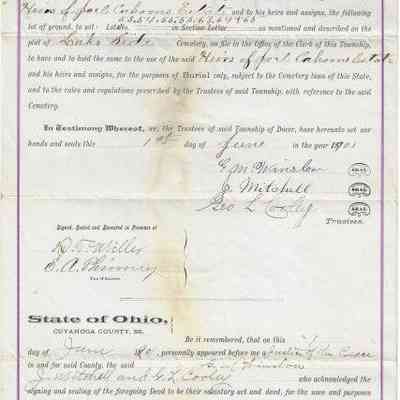 Heirs of Joel Cahoons Estate and to his heirs and assigns, the following
lot of ground, to wit: Lot No. in Section Letter as mentioned and described on the
plat of Lake Side Cemetery, on file in the Office of the Clerk of this Township,
to have and to hold the same to the use of the said Heirs of Joel Cahoons Estate
and his heirs and assigns, for the purposes of Burial only, subject to the Cemetery laws of this State,
and to the rules and regulations prescribed by the Trustees of said Township, with reference to the said
Cemetery.
In Testimony Whereof, we, the Trustees of said Township of Dover, have hereunto set our
hands and seals this 1st day of June in the year 1901
G M Winslow SEAL
C. Mitchell SEAL
Geo L Cooley SEAL
Trustees.
Signed, Sealed and Executed in Presence of
Miller
E. A. Phinney
State of Ohio,
CUYAHOGA COUNTY, SS.
Be it remembered, that on this 1st
day of June 190 , personally appeared before me a Justice of the Peace
in and for said County, the said Winslow
Mitchell and G L Cooley who acknowledged the
signing and sealing of the foregoing Deed to be their voluntary act and deed, for the uses and purposes